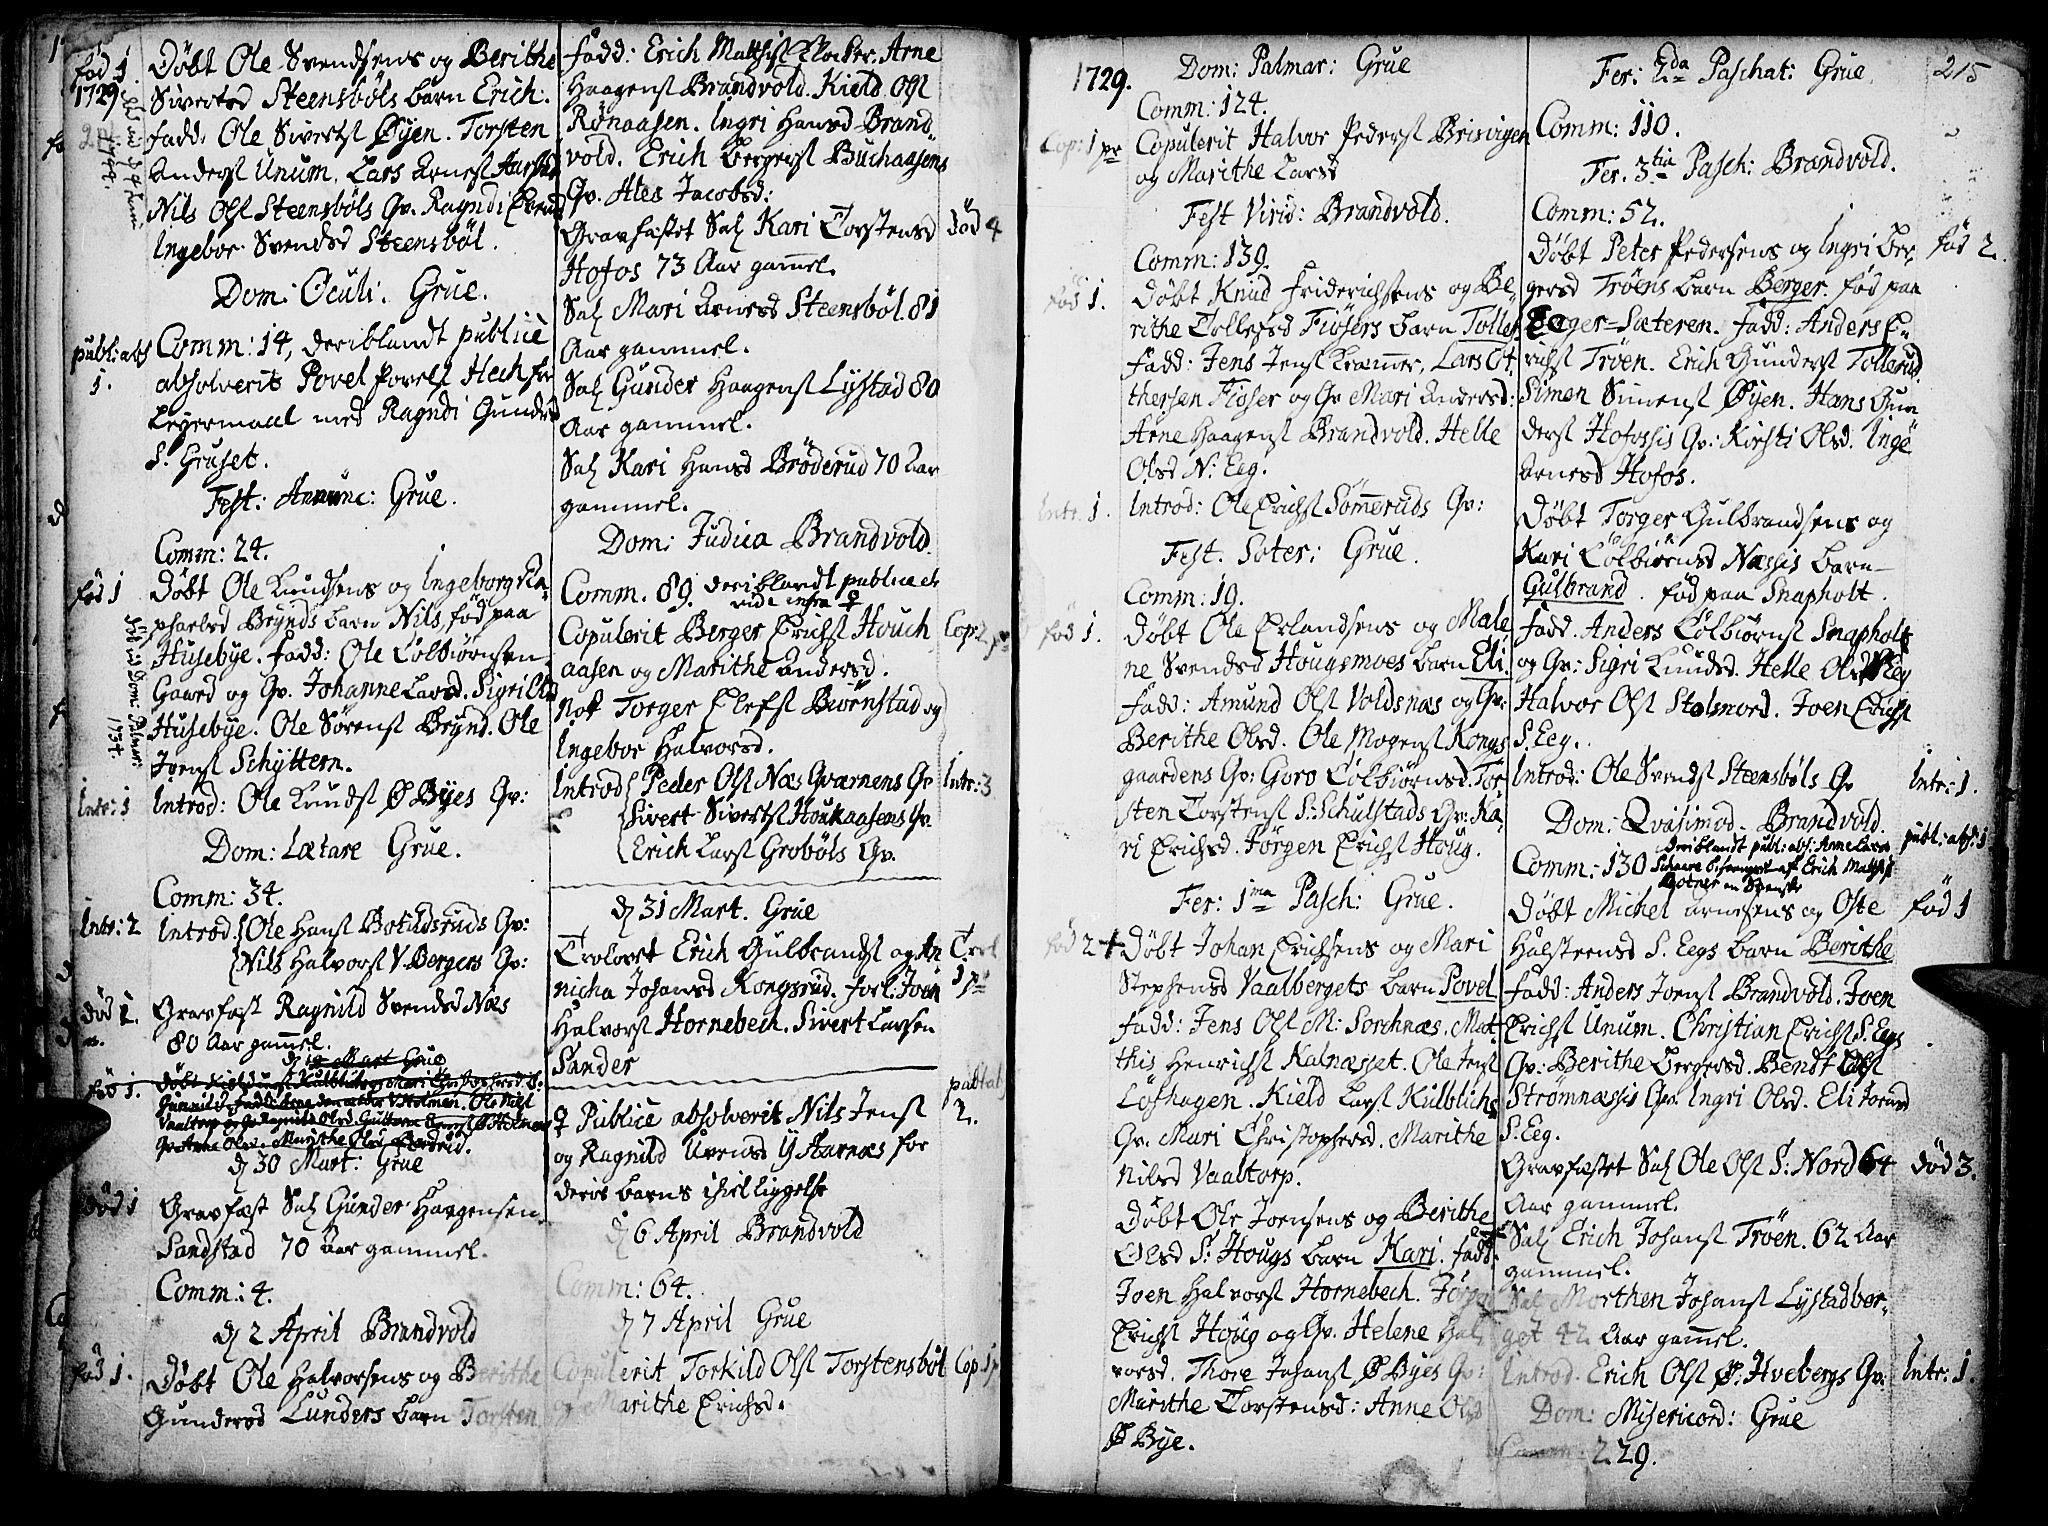 1729.
fød 1.
Døbt Ole Svendsens og Berithe
Sivertsd Steensbøls barn Erich.
fadd: Ole Sivertsl Øyen. Torsten
Andersl Unum. Lars Arnesl
Nils Olsl Steensbøls Qv. Ragndi
Ingebor Svendsd Steensbøl.
Dom: Oculi. Grue.
publ: abs 1.
Comm: 14, deriblandt publicè
absolverit Povel Povelsl Hech for
Leyermaal med Ragndi Gundersd
S. Gruset.
Fest: Annunc: Grue.
Comm: 24.
fød 1
Døbt Ole Knudsens og Ingeborg Ra-
phaelsd Brynds barn Nils, fød paa
Husebye. fadd: Ole Colbiørnsen
Gaard og Qv. Johanne Larsd. Sigri
Husebye. Ole Sørensl Brynd. Ole
Joensl Schyttern.
død Dom: Palmar: 1734.
Intr: 1
Introd: Ole Knudsl Ø Byes Qv:
Dom: Lætare Grue.
Comm: 34.
Intr: 2
Introd Ole Hansl Botildsruds Qv:
Nils Halvorsl V. Bergers Qv:
død 1.
Gravfæst Ragnild Svendsd Næs
80 Aar gammel.
fød 1.
d 30 Mart: Grue
død 1
Gravfæst Sal Gunder Haagensen
Sandstad 70 Aar gammel.
Comm: 4.
d 2 April Brandvold
fød 1.
Døbt Ole Halvorsens og Berithe
Gundersd Lunders barn Torsten
fadd: Erich Matthisl Klocker. Arne
Haagensl Brandvold. Kield Olsl
Rønaasen. Ingri Hansd Brand-
vold. Erich Bergersl Buchaasens
Qv. Ales Jacobsd:
Gravfæstet Sal Kari Torstensd død 4
Hofos 73 Aar gammel.
Sal Mari Arnesd Steensbøl 81
Aar gammel.
Sal Gunder Haagensl Lystad 80
Aar gammel.
Sal Kari Hansd Brøderud 70 Aar
gammel.
Dom: Judica Brandvold.
Comm. 89. deriblandt publice
vide infra ♀
Copulerit Berger Erichsl Houch Cop: 2 pr
aasen og Marithe Andersd.
Nok Torger Elefsl Biørnstad og
Ingebor Halvorsd.
Introd Peder Olsl Næs Qvarnens Qv Intr: 3
Sivert Sivertsl Houkaasens Qv.
Erich Larsl Grobøls Qv.
d 31 Mart. Grue
Trolovet Erich Gulbrandsl og An Trol
nicha Johansd Kongsrud. Forl: Joen 1 pr
Halvorsl Hornebech. Sivert Larsen
Sander
publ: abs
♀ Publicè absolverit Nils Jensl 2.
og Ragnild Uvensd Y Harnæs for
deris barns ihielliggelse
d 6 April Brandvold
Comm: 64.
d 7 April Grue
Copulerit Torkild Olsl Torstensbøl Cop. 1 pr
og Marithe Erichsd.
1729.
Dom: Palmar: Grue
Comm: 124.
Cop: 1 pr
Copulerit Halvor Pedersl Brisvigen
og Marithe Larsd
Fest Virid: Brandvold.
Comm: 139.
fød 1.
Døbt Knud Friderichsens og Be-
rithe Tollefsd Fiøsers barn Tollef.
fadd: Jens Jensl Kræmmer, Lars Ot-
thersen Fiøser og Qv Mari Andersd:
Arne Haagensl Brandvold. Helle
Olsd N. Eeg.
Intr. 1.
Introd: Ole Erichsl Sømmeruds Qv:
Fest. Soter: Grue.
Comm: 19.
fød 1.
Døbt Ole Erlandsens og Male-
ne Svendsd Hougsmoes barn Eli.
fadd: Amund Olsl Voldsnæs og Qv:
Berithe Olsd. Ole Mogensl Kongs
gaardens Qv: Goro Colbiørnsd. Tor-
sten Torstensl S: Schulstads Qv: Ka-
ri Erichsd. Jørgen Erichsl Houg.
Fer: 1ma Pasch: Grue.
fød 2
Døbt Johan Erichsens og Mari
Stephensd Vaalbergets barn Povel
fadd: Jens Olsl M: Sorchnæs. Mat-
this Henrichsl Kalnæsset. Ole Jensl
Løfhagen. Kield Larsl Kulblichs
Qv. Mari Christophersd. Marithe
Nilsd Vaaltorp.
Døbt Ole Joensens og Berithe
Olsd S: Hougs barn Kari. fadd:
Joen Halvorsl Hornebech. Jørgen
Erichsl Houg og Qv. Helene Hal-
vorsd. Thore Johansl Ø Byes Qv:
Marithe Torstensd: Anne Olsd
Ø Bye.
215
Fer: 2da Paschat: Grue
Comm: 110.
Fer. 3tia Pasch: Brandvold.
Comm: 52.
Døbt Peter Pedersens og Ingri Ber- fød 2.
gersd Trøens barn Berger. fød paa
Eeger-Sæteren. fadd: Anders E-
richsl Trøen. Erich Gundersl Tollerud
Simen Simensl Øyen. Hans Gun
dersl Hofossis Qv: Kirsti Olsd. Inge
Arnesd Hofos.
Døbt Torger Gulbrandsens og
Kari Colbiørnsd Næssis barn
Gulbrand. fød paa Snapholt.
fadd. Anders Colbiørnsl Snapholt
og Qv: Sigri Knudsd. Helle Olsd Eeg
Halvor Olsl Stolsmord. Joen Erichsl
S. Eeg.
Introd: Ole Svendsl Steensbøls Qv Intr: 1.
Dom: Qvasimod. Brandvold.
Comm: 130 deriblandt publ: abs: Anne Larsd publ: abs: 1
besvangret af Erich Matthisl
en Svenske
Døbt Michel Arnesens og Oste fød 1
Halsteensd S. Eegs barn Berithe
fadd: Anders Joensl Brandvold. Joen
Erichsl Unum. Christian Erichsl S. Eegs
Qv: Berithe Bergersd. Bendt Olsl
Strømnæssis Qv: Ingri Olsd. Eli Joensd
S. Eeg.
Gravfæstet Sal Ole Olsl S: Nord 64 død 3.
Aar gammel.
Sal Erich Johansl Trøen. 62 Aar
gammel.
Sal Morthen Johansl Lystadber-
get 42 Aar gammel.
Introd. Erich Olsl Ø. Hvebergs Qv: Intr: 1.
Dom: Misericord: Grue
Comm: 229.